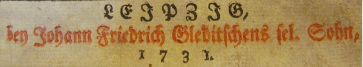 LEJPZJG,
bey Johann Friedrich Gleditschens sel. Sohn,
1731.